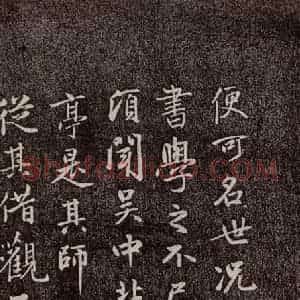 便可名世况
書學之不
須聞吴中
亭是其師
從其借觀